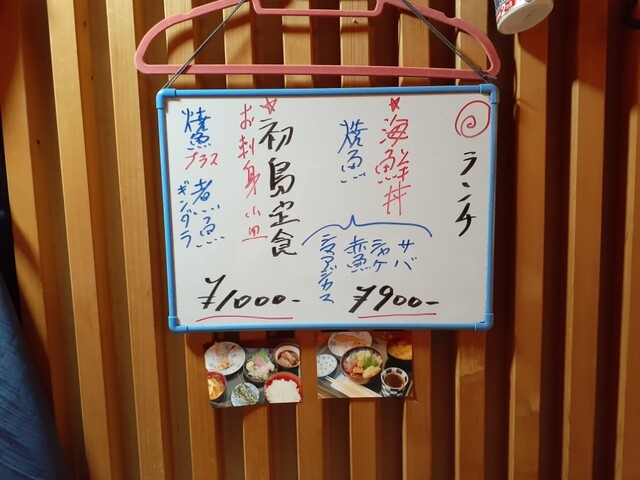 ランチ
★海鮮丼
焼魚
サバ
シャケ
赤魚
シマアジカス
¥900-
★初島定食
お刺身小皿
焼魚プラス煮魚
ギンダラ
¥1000-